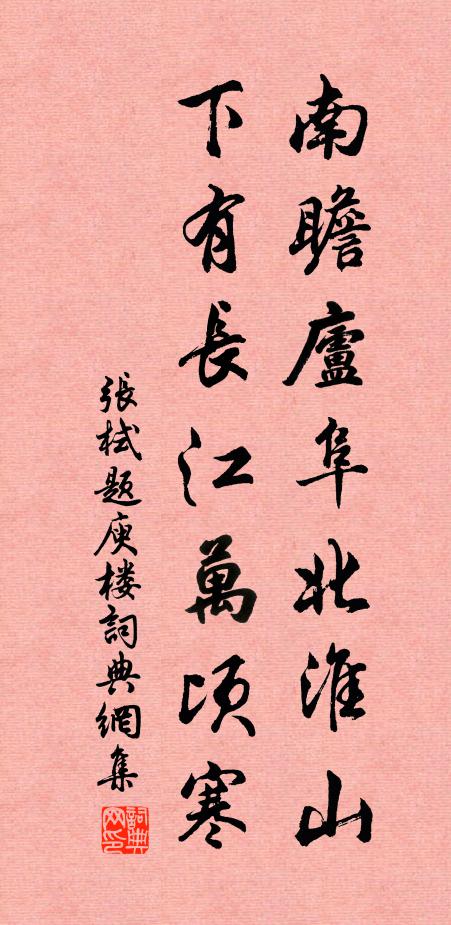 南瞻廬阜北淮山
下有長江萬頃寒
張栻题庾楼詞典網集
詞典网印